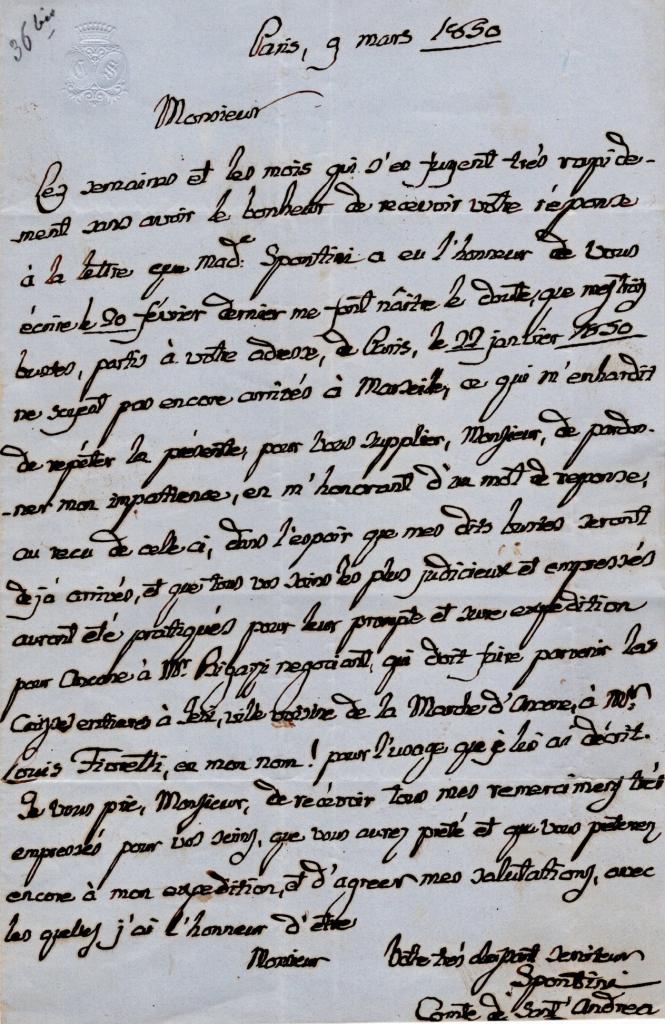 36 bis
Paris, 9 mars 1850
Monsieur
Les semaines et les mois qui s'en fuyent très rapide-
ment sans avoir le bonheur de recevoir votre réponse
à la lettre que Made: Spontini a eu l'honneur de vous
écrire le 20 février dernier me font naître le doute, que mes trois
bustes, partis à votre adresse, de Paris, le 22 janvier 1850
ne soyent pas encore arrivés à Marseille, ce qui m'enhardit
de répéter la présente, pour vous supplier, Monsieur, de pardon-
-ner mon impatience, en m'honorant d'un mot de reponse,
au reçu de celle ci, dans l'espoir que mes dits bustes seront
dejà arrivés, et que tous vos soins les plus judicieux et empressés
auront été pratiqués pour leur prompte et sure expedition
pour Ancone à Mr. negotiant, qui doit faire parvenir les
Caisses entieres à Jesi, ville voisine de la Marche d'Ancone, à Mr.
Louis Fioretti, en mon nom! pour l'usage que je lui ai décrit.
Je vous prie, Monsieur, de recevoir tous mes remerciments très
empressés pour vos soins, que vous avez prêté et que vous prêterez
encore à mon expedition, et d'agreer mes salutations, avec
les quelles j'ai l'honneur d'être
Monsieur Votre très serviteur
Spontini
Comte de Sant' Andrea